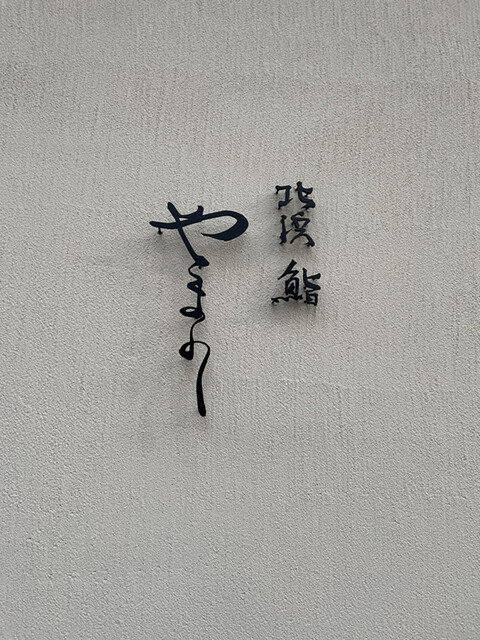 北浜 鮨
やまの